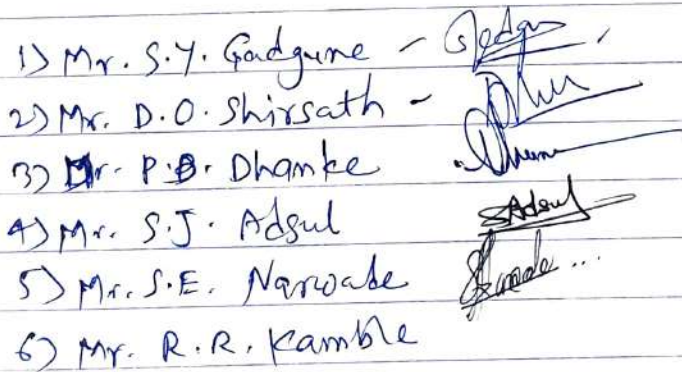 1) Mr. S.Y. Gadgune -
2) Mr. D.O. Shirsath -
3) Dr. P.B. Dhanke
4) Mr. S.J. Adsul SAdsul
5) Mr. S.E. Narwade
6) Mr. R.R. Kamble